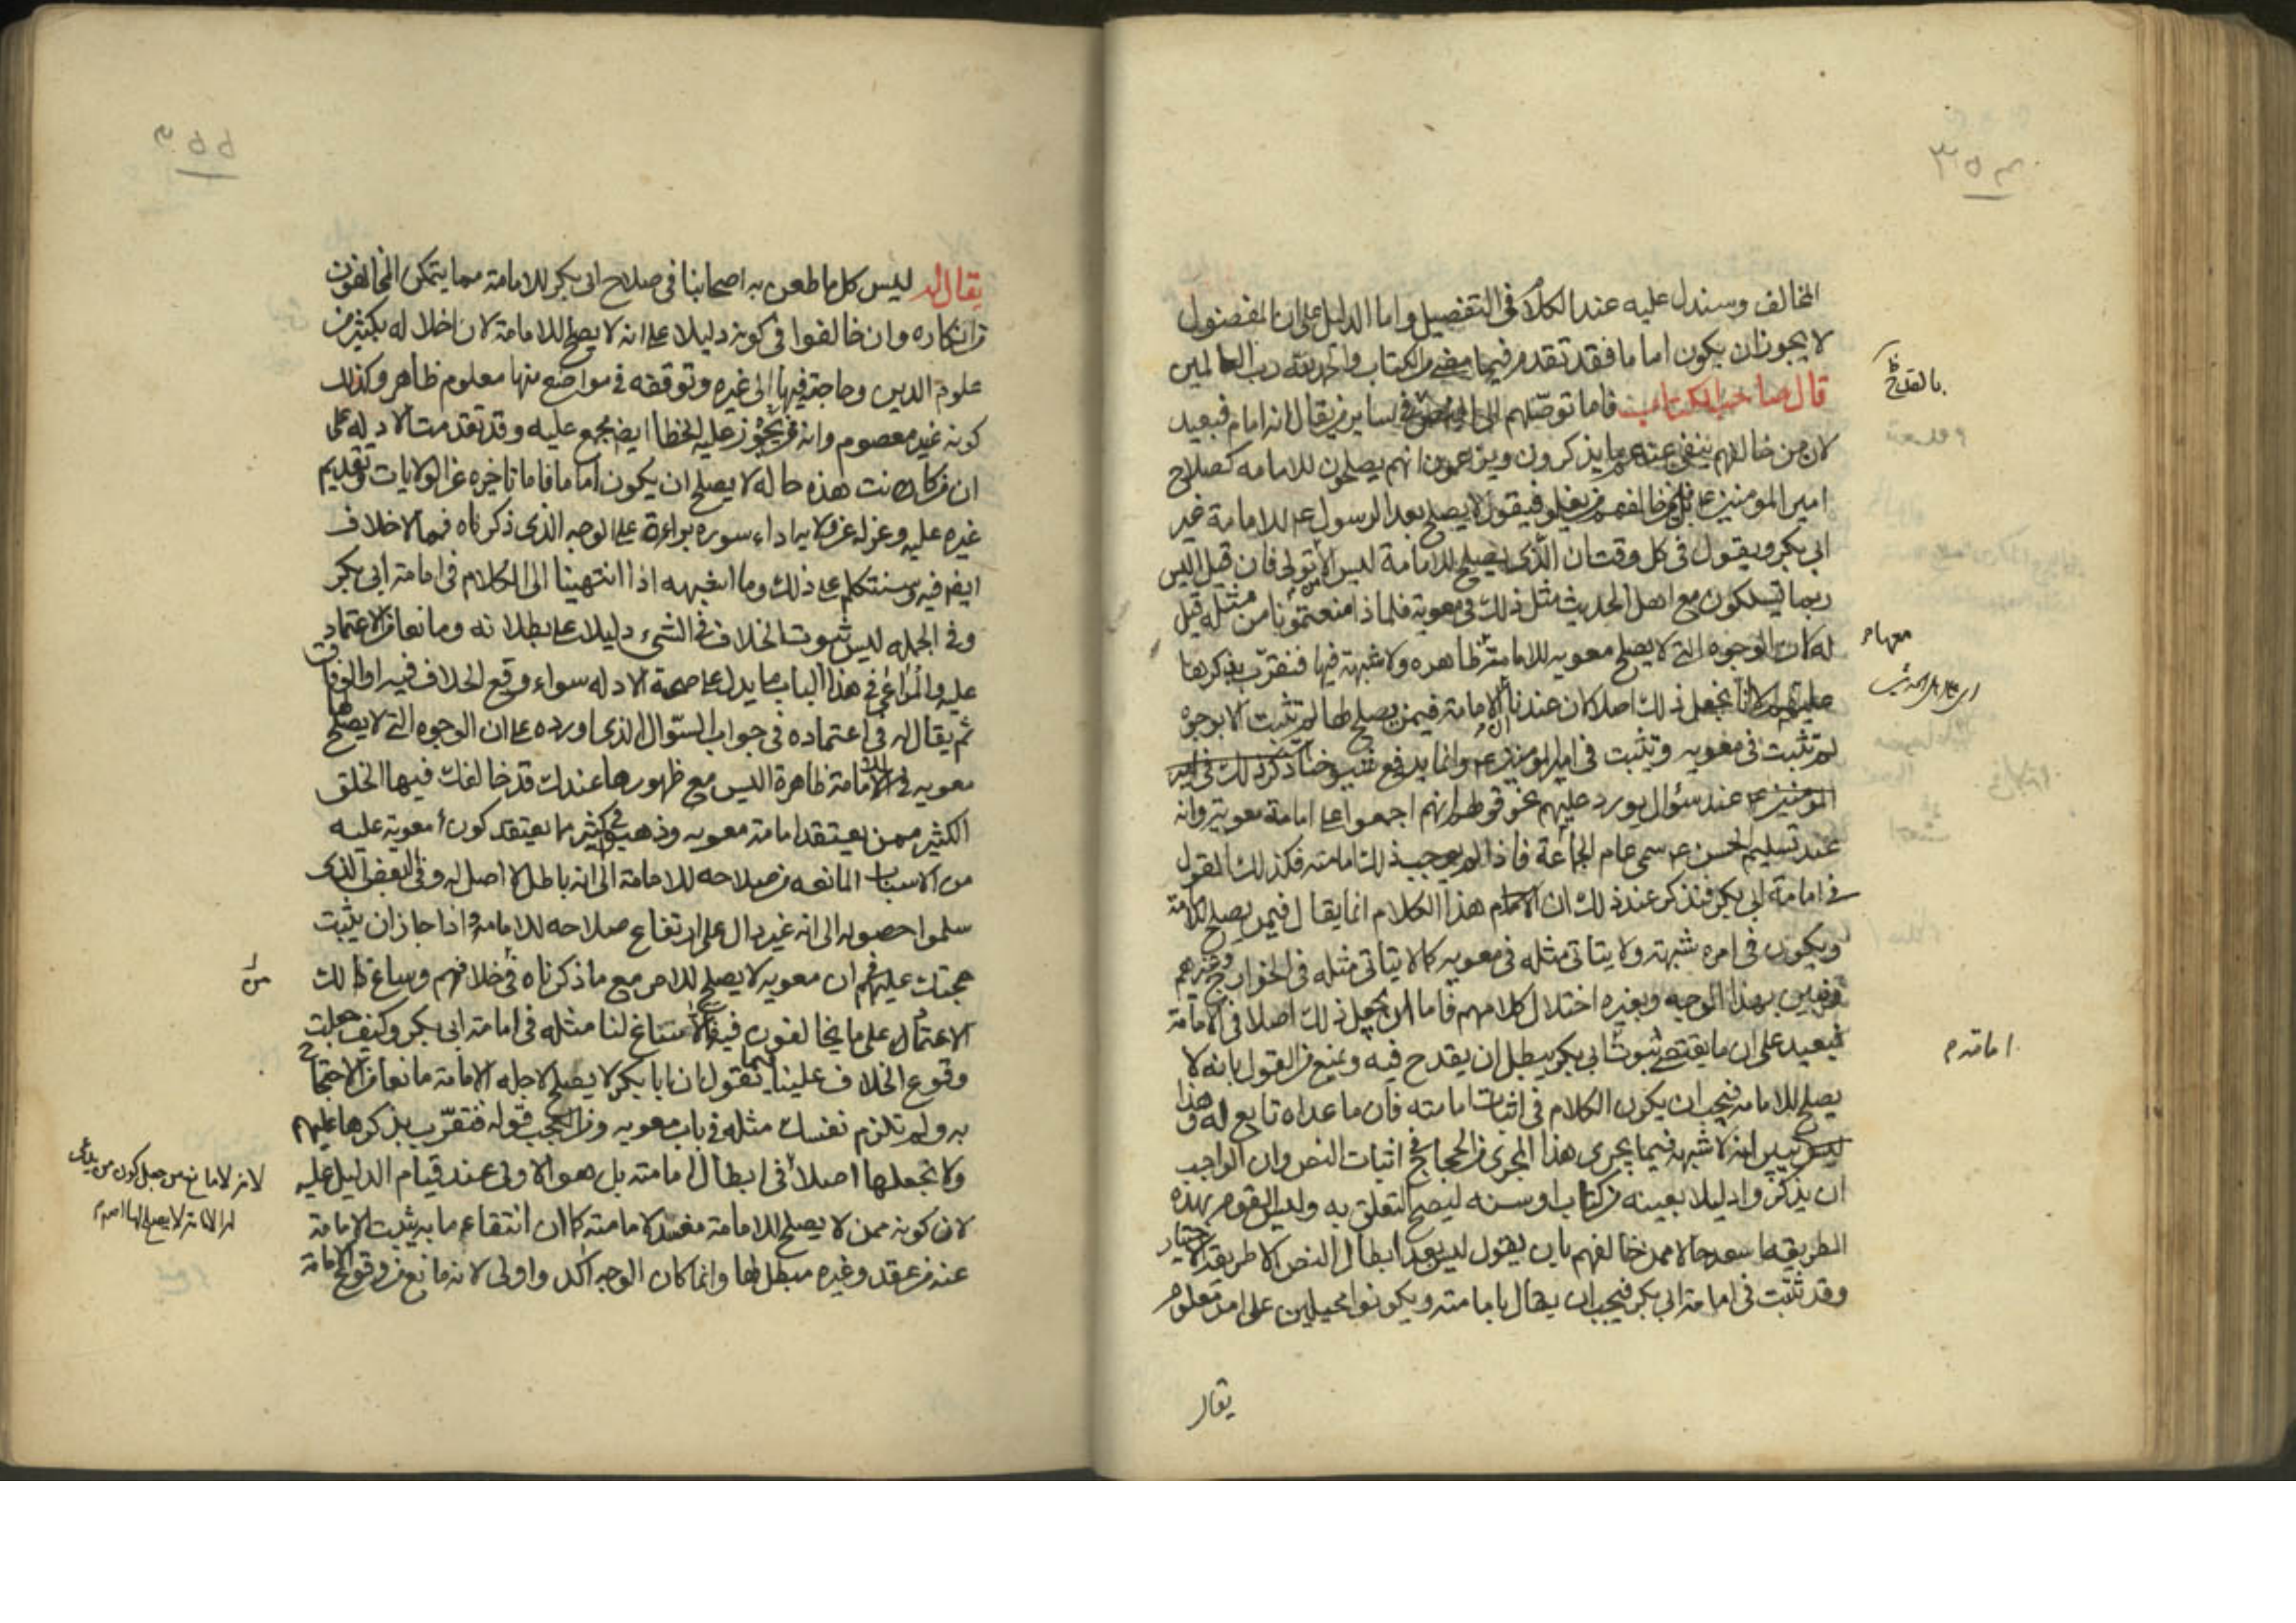 المخالف وسندل عليه عند الكلام فى التفصيل واما الدليل على ان المفضول
لا يجوز ان يكون اماما فقد تقدم فيما مضى من الكتاب والحمد لله رب العالمين
قال صاحب الكتاب فاما توصلهم الى فى ساير من يقال انه امام فبعيد
لان من خالفهم ينفى عنه ما يذكرون ويزعمون انهم يصلحون للامامه كصلاح
امير المومنين ع بل فى خالفهم من يغلو فيقول لا يصلح بعد الرسول ع للامامة غير
ابى بكر ويقول فى كل وقت ان الذى يصلح للامامة ليس الا تولى فان قيل اليس
ربما تسلكون مع اهل الحديث مثل ذلك فى معوية فلماذا منعتمونا من مثله قيل
له كان الوجوه التى لا يصلح معويه للامامة ظاهره ولا شبهة فيها فنقرب بذكرها
عليهم لا انا نجعل ذلك اصلا كان عندنا الامامة فيمن يصلح لها لم تثبت الا بوجوه
لم تثبت فى معويه وتثبت فى امير المومنين ع وانما يدفع شيوخنا ذكر ذلك فى امير
المومنين ع عند سؤال يورد عليهم نحو قولهم انهم اجمعوا على امامة معوية وانه
عند تسليم الحسن ع سمى عام الجماعة فاذا لم يوجب ذلك امامته فكذلك القول
فى امامة ابى بكر فنذكر عند ذلك ان هذا الكلام انما يقال فيمن يصلح للامامة
ويكون فى امره شبهة ولا يتاتى مثله فى معويه كما لا يتاتى مثله فى الخوارج وغيرهم
ونبين بهذا الوجه وبغيره اختلال كلامهم فاما ان نجعل ذلك اصلا فى الامامة
فبعيد على ان ما يقتضى ثبوت ابى بكر يبطل ان يقدح فيه ويمنع من القول بانه لا
يصلح للامامه فيجب ان يكون الكلام فى اثبات امامته فان ما عداه تابع له وهذا
يبين انه لا شبهه فيما يجرى هذا المجرى من الحجاج فى اثبات النص وان الواجب
ان يذكروا دليلا بعينه من كتاب او سنه ليصح التعلق به وليس القوم بهذه
الطريقه باسعد حالا ممن خالفهم بان يقول ليس بعد ابطال النص الا طريقة الاختيار
وقد ثبتت فى امامة ابى بكر فيجب ان يقال بامامته ويكونوا محيلين على امر معلوم
بالقدح
معهام
امامته م
يقال
يقال له ليس كل ما طعن به اصحابنا فى صلاح ابى بكر للامامة مما يتمكن المخالفون
من انكاره وان خالفوا فى كونه دليلا على انه لا يصلح للامامة لان اخلاله بكثير من
علوم الدين وحاجته فيها الى غيره وتوقفه فى مواضع منها معلوم ظاهر وكذلك
كونه غير معصوم وانه ممن يجوز عليه الخطا ايضا مجمع عليه وقد تقدمت الادله على
ان من كانت هذه حاله لا يصلح ان يكون اماما فاما تاخيره عن الولايات وتقديم
غيره عليه وعزله عن اداء سوره براءة على الوجه الذى ذكرناه فمما لا خلاف
ايضا فيه وسنتكلم على ذلك وما اشبهه اذا انتهينا الى الكلام فى امامة ابى بكر
وفى الجمله ليس ثبوت الخلاف فى الشىء دليلا على بطلانه وما نعا من الاعتماد
عليه والمراعى فى هذا الباب ما يدل على صحة الادله سواء وقع الخلاف فيها او الوفاق
ثم يقال له فى اعتماده فى جواب السؤال الذى اورده على ان الوجوه التى لا يصلح لها
معويه للامامة ظاهرة اليس مع ظهورها عندك قد خالفك فيها الخلق
الكثير ممن يعتقد امامة معويه وذهب فى كثير مما يعتقد كون معوية عليه
من الاسباب المانعه من صلاحه للامامة الى انه باطل لا اصل له وفى البعض الذى
سلموا حصوله الى انه غير دال على ارتفاع صلاحه للامامه واذا جاز ان يثبت
حجتك عليهم فى ان معويه لا يصلح للامر مع ما ذكرناه من خلافهم وساغ لك
الاعتماد على ما يخالفون فيه فالا ساغ لنا مثله فى امامة ابى بكر وكيف جعلت
وقوع الخلاف علينا فيما نقول ان ابا بكر لا يصلح لاجله للامامة مانعا من الاحتجاج
به ولم تلزم نفسك مثله فى باب معويه ومن العجب قوله فنقرب بذكرها عليهم
ولا نجعلها اصلا فى ابطال امامته بل هو الاولى عند قيام الدليل عليه
لان كونه ممن لا يصلح للامامة مفسد لامامته كما ان انتفاء ما به يثبت الامامة
عنده من عقد وغيره مبطل لها وانما كان الوجه اكد واولى لانه مانع من وقوع الامامة